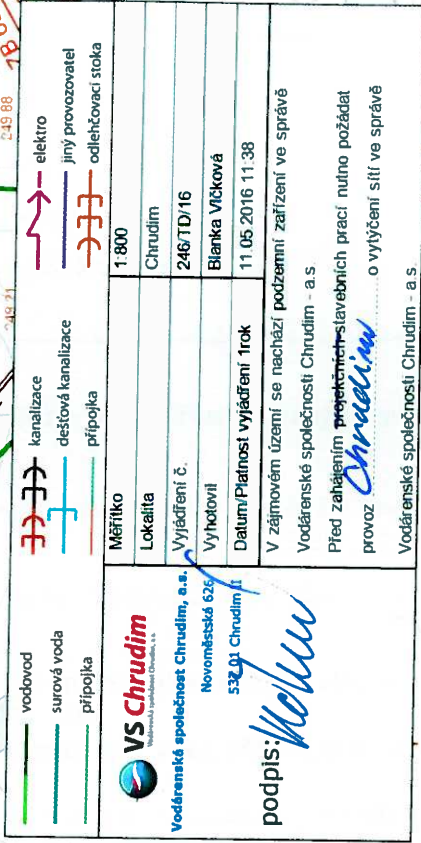 249 21
249 88
vodovod
surová voda
přípojka
kanalizace
dešťová kanalizace
přípojka
elektro
jiný provozovatel
odlehčovací stoka
VS Chrudim
Vodárenská společnost Chrudim, a.s.
Vodárenská společnost Chrudim, a.s.
Novoměstská 626
537 01 Chrudim II
podpis:
Měřítko 1:800
Lokalita Chrudim
Vyjádření č. 246/TD/16
Vyhotovil Blanka Vlčková
Datum/Platnost vyjádření 1rok 11.05 2016 11:38
V zájmovém území se nachází podzemní zařízení ve správě
Vodárenské společnosti Chrudim - a.s.
Před zahájením projekčních-stavebních prací nutno požádat
provoz Chrudim o vytyčení sítí ve správě
Vodárenské společnosti Chrudim - a.s.